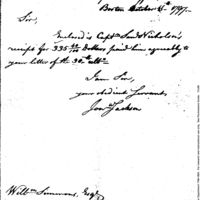 Boston October 4th 1797.
Sir,
Enclosed is Captn Saml Nicholson's
receipt for 335 dollars paid him agreeably to
your letter of the 30th ulto.
I am Sir,
your obedient Servant
Jona Jackson
Willm Simmons, Esqr